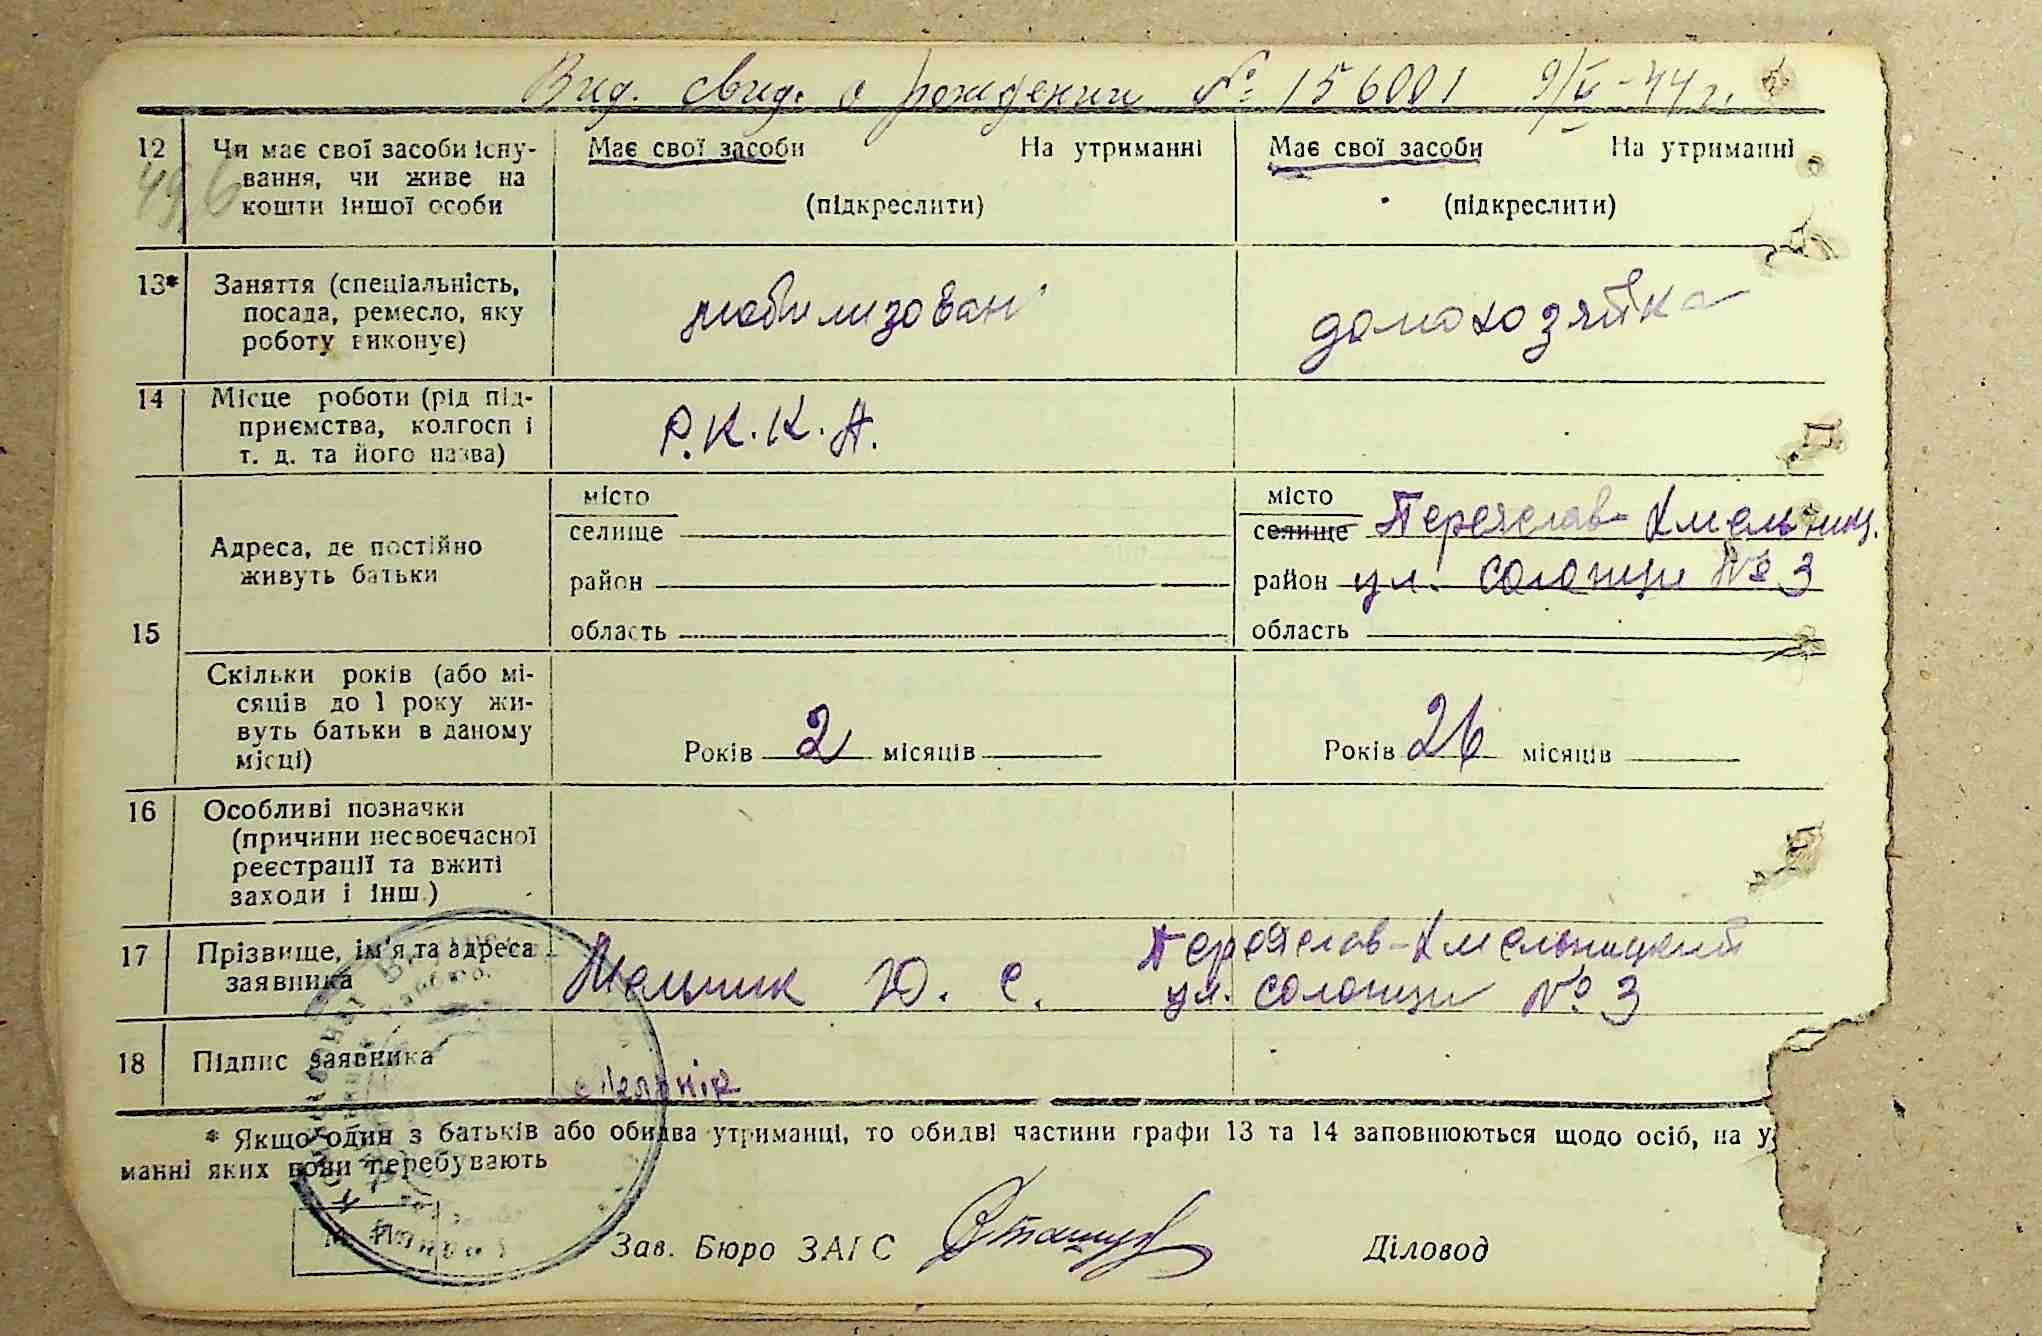 Выд. свид. о рождении № 156001 9/V-44 г.
12 Чи має свої засоби існу- Має свої засоби На утриманні Має свої засоби На утриманні
вання, чи живе на
кошти іншої особи (підкреслити) (підкреслити)
13* Заняття (спеціальність, мобилизован домохозяйка
посада, ремесло, яку
роботу виконує)
14 Місце роботи (рід під-
приємства, колгосп і Р.К.К.А.
т. д. та його назва)
15 Адреса, де постійно
живуть батьки
місто місто Переяслав-Хмельниц.
селище селище
район район ул. Солонци № 3
область область
Скільки років (або мі-
сяців до 1 року жи-
вуть батьки в даному
місці) Років 2 місяців Років 26 місяців
16 Особливі позначки
(причини несвоєчасної
реєстрації та вжиті
заходи і інш.)
17 Прізвище, ім'я та адреса Мельник Ю. С. Переяслав-Хмельницкий
заявника ул. Солонци № 3
18 Підпис заявника Мельнік
* Якщо один з батьків або обидва утриманці, то обидві частини графи 13 та 14 заповнюються щодо осіб, на у
манні яких вони перебувають
Зав. Бюро ЗАГС Діловод